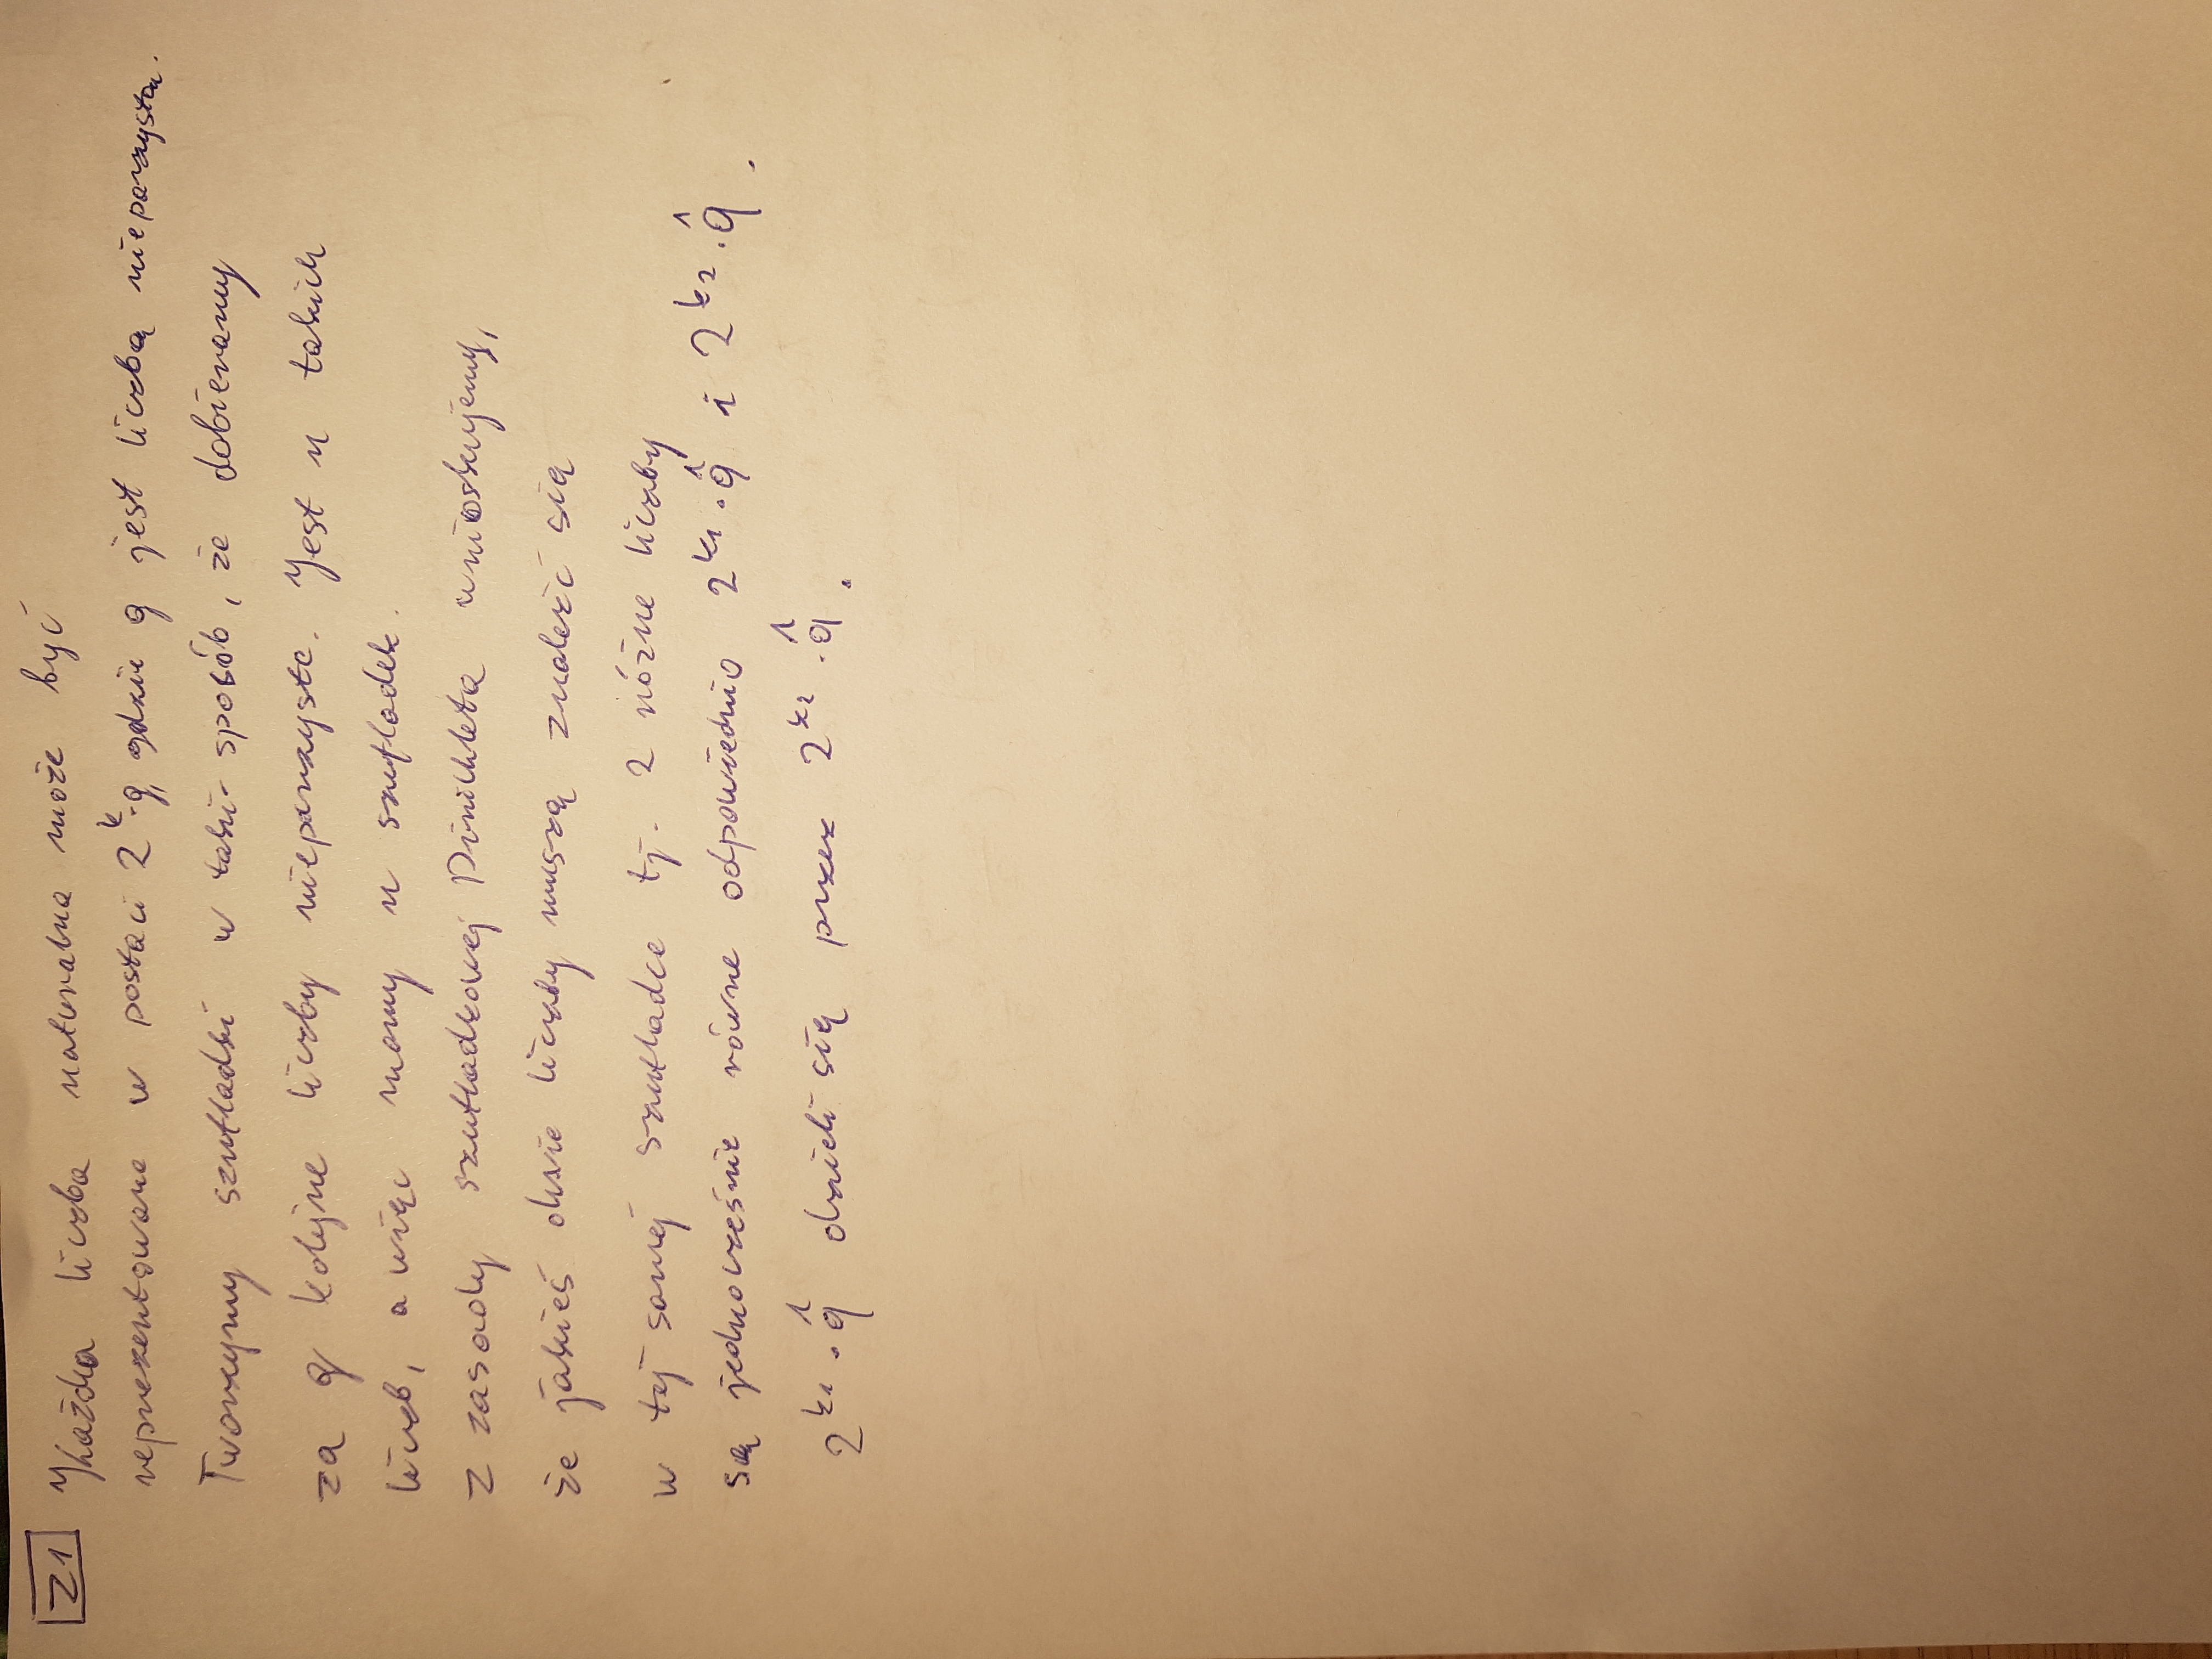 Z1 Każda liczba naturalna może być
reprezentowana w postaci 2^k·q, gdzie q jest liczbą nieparzystą.
Tworzymy szufladki w taki sposób, że dobieramy
za q kolejne liczby nieparzyste. Jest n takich
liczb, a więc mamy n szufladek.
Z zasady szufladkowej Dirichleta wnioskujemy,
że jakieś dwie liczby muszą znaleźć się
w tej samej szufladce tj. 2 różne liczby
są jednocześnie równe odpowiednio 2^{k1}·q̂ i 2^{k2}·q̂.
2^{k1}·q̂ dzieli się przez 2^{k2}·q̂.